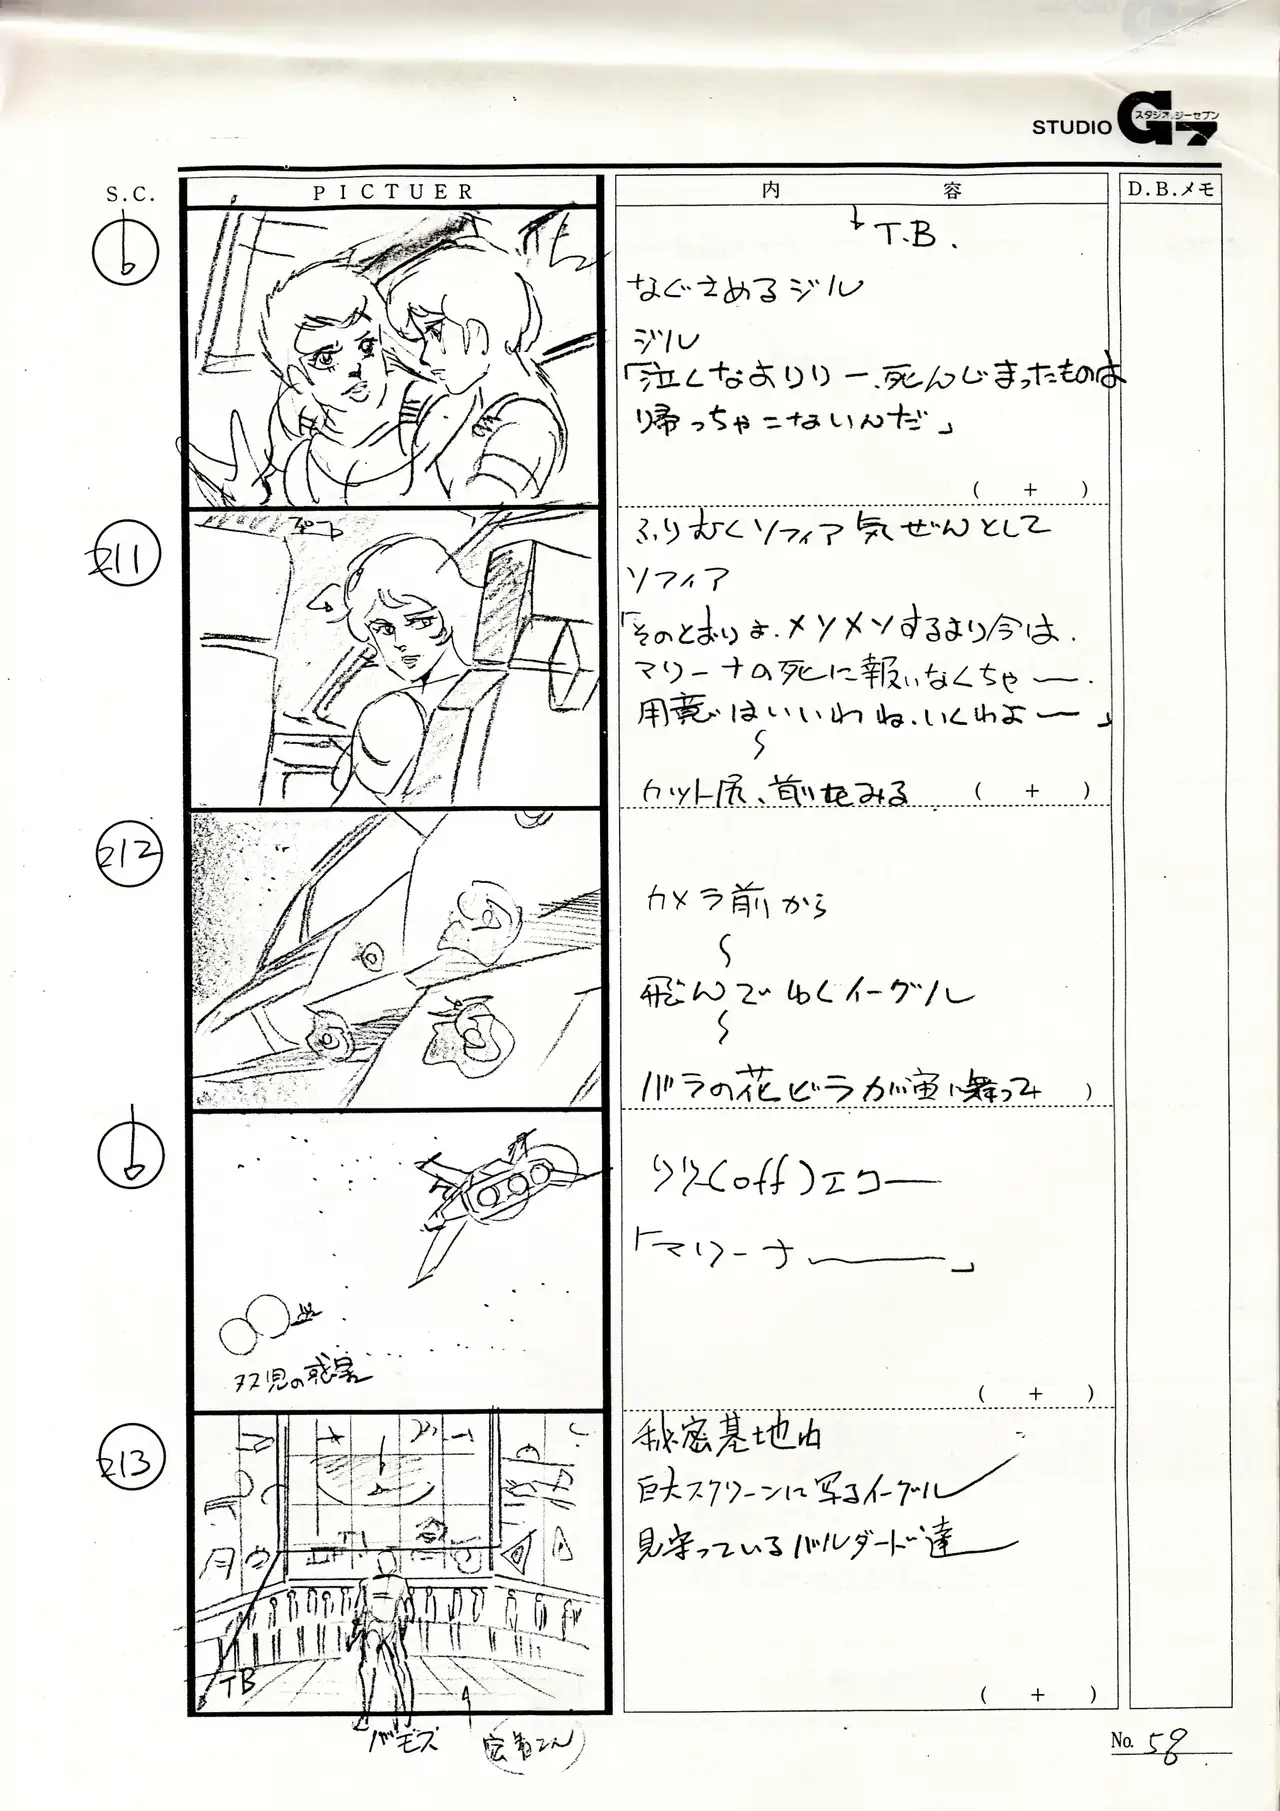 STUDIO G7
スタジオ・ジーセブン
S.C.
PICTUER
内 容
D.B.メモ
T.B.
なぐさめるジル
ジル
「泣くなよリリー、死んじまったものは
帰っちゃこないんだ」
( + )
211
ふりむくソフィア気ぜんとして
ソフィア
「そのとおりよ、メソメソするより今は、
マリーナの死に報いなくちゃ—.
用意はいいわね、いくわよ—」
カット尻、前をみる
( + )
212
カメラ前から
飛んでゆくイーグル
バラの花ビラが宙に舞って
)
双児の惑星
リリー(off)エコー
「マリーナ——」
( + )
213
秘密基地内
巨大スクリーンに写るイーグル
見守っているバルダード達
TB
( + )
バモズ
No. 58